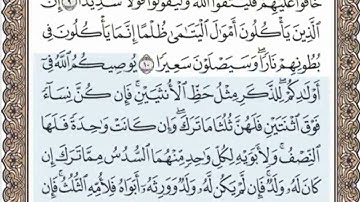 خَافُوا۟ عَلَيْهِمْ فَلْيَتَّقُوا۟ ٱللَّهَ وَلْيَقُولُوا۟ قَوْلًا سَدِيدًا ٩ إِنَّ
ٱلَّذِينَ يَأْكُلُونَ أَمْوَٰلَ ٱلْيَتَٰمَىٰ ظُلْمًا إِنَّمَا يَأْكُلُونَ فِى
بُطُونِهِمْ نَارًا ۖ وَسَيَصْلَوْنَ سَعِيرًا ١٠ يُوصِيكُمُ ٱللَّهُ فِىٓ
أَوْلَٰدِكُمْ ۖ لِلذَّكَرِ مِثْلُ حَظِّ ٱلْأُنثَيَيْنِ ۚ فَإِن كُنَّ نِسَآءً
فَوْقَ ٱثْنَتَيْنِ فَلَهُنَّ ثُلُثَا مَا تَرَكَ ۖ وَإِن كَانَتْ وَٰحِدَةً فَلَهَا
ٱلنِّصْفُ ۚ وَلِأَبَوَيْهِ لِكُلِّ وَٰحِدٍ مِّنْهُمَا ٱلسُّدُسُ مِمَّا تَرَكَ إِن
كَانَ لَهُۥ وَلَدٌ ۚ فَإِن لَّمْ يَكُن لَّهُۥ وَلَدٌ وَوَرِثَهُۥٓ أَبَوَاهُ فَلِأُمِّهِ ٱلثُّلُثُ ۚ فَإِن